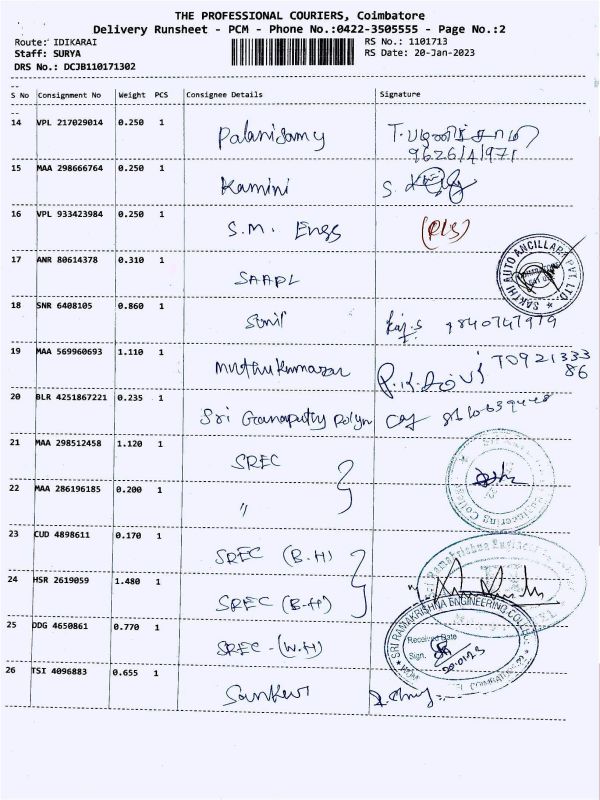 THE PROFESSIONAL COURIERS, Coimbatore
Delivery Runsheet - PCM - Phone No.:0422-3505555 - Page No.:2
Route: IDIKARAI RS No.: 1101713
Staff: SURYA RS Date: 20-Jan-2023
DRS No.: DCJB110171302
S No Consignment No Weight PCS Consignee Details Signature
14 VPL 217029014 0.250 1 Palanisamy T. பழனிச்சாமி
9626141971
15 MAA 298666764 0.250 1 Kamini S.
16 VPL 933423984 0.250 1 S.M. Engs (RLS)
17 ANR 80614378 0.310 1 SAAPL
SAKTHI AUTO ANCILLARY PVT. LTD
18 SNR 6408105 0.860 1 Sunil 9840747979
19 MAA 569960693 1.110 1 Muthukumaran
20 BLR 4251867221 0.235 1 Sri Ganapathy Polym
21 MAA 298512458 1.120 1 SREC
22 MAA 286196185 0.200 1 "
Engineering College
23 CUD 4898611 0.170 1 SREC (B.H)
24 HSR 2619059 1.480 1 SREC (B-H)
Sri Ramakrishna Engineering
25 DDG 4650861 0.770 1 SREC - (W.H)
SRI RAMAKRISHNA ENGINEERING COLLEGE
Received Date
Sign.
20.01.23
COIMBATORE
26 TSI 4096883 0.655 1 Sankevi